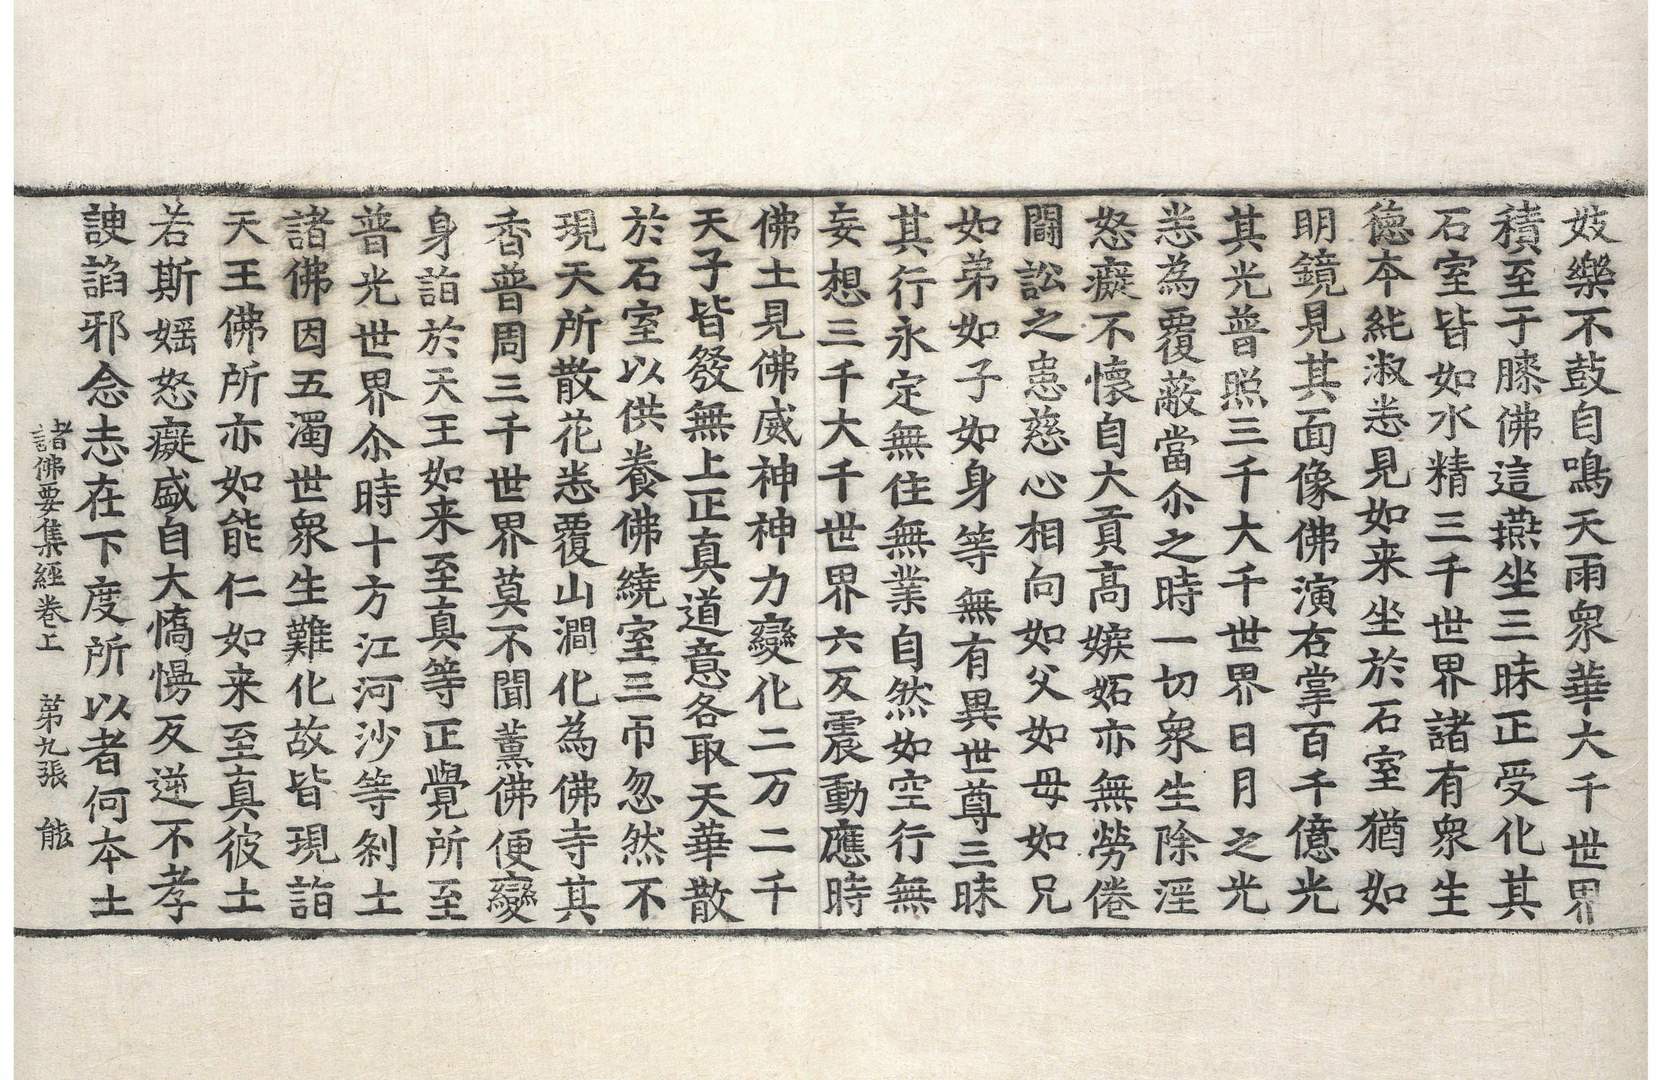 妓樂不鼓自鳴天雨衆華大千世界
積至于膝佛這燕坐三昧正受化其
石室皆如水精三千世界諸有衆生
德本純淑悉見如来坐於石室猶如
明鏡見其面像佛演右掌百千億光
其光普照三千大千世界日月之光
悉為覆蔽當尒之時一切衆生除婬
怒癡不懷自大貢高嫉妬亦無勞倦
鬪訟之患慈心相向如父如母如兄
如弟如子如身等無有異世尊三昧
其行永定無住無業自然如空行無
妄想三千大千世界六反震動應時
佛土見佛威神神力變化二万二千
天子皆發無上正真道意各取天華散
於石室以供養佛繞室三帀忽然不
現天所散花悉覆山澗化為佛寺其
香普周三千世界莫不聞薰佛便變
身詣於天王如来至真等正覺所至
普光世界尒時十方江河沙等剎土
諸佛因五濁世衆生難化故皆現詣
天王佛所亦如能仁如来至真彼土
若斯婬怒癡盛自大憍慢反逆不孝
諛諂邪念志在下度所以者何本土
諸佛要集經卷上 第九張 能